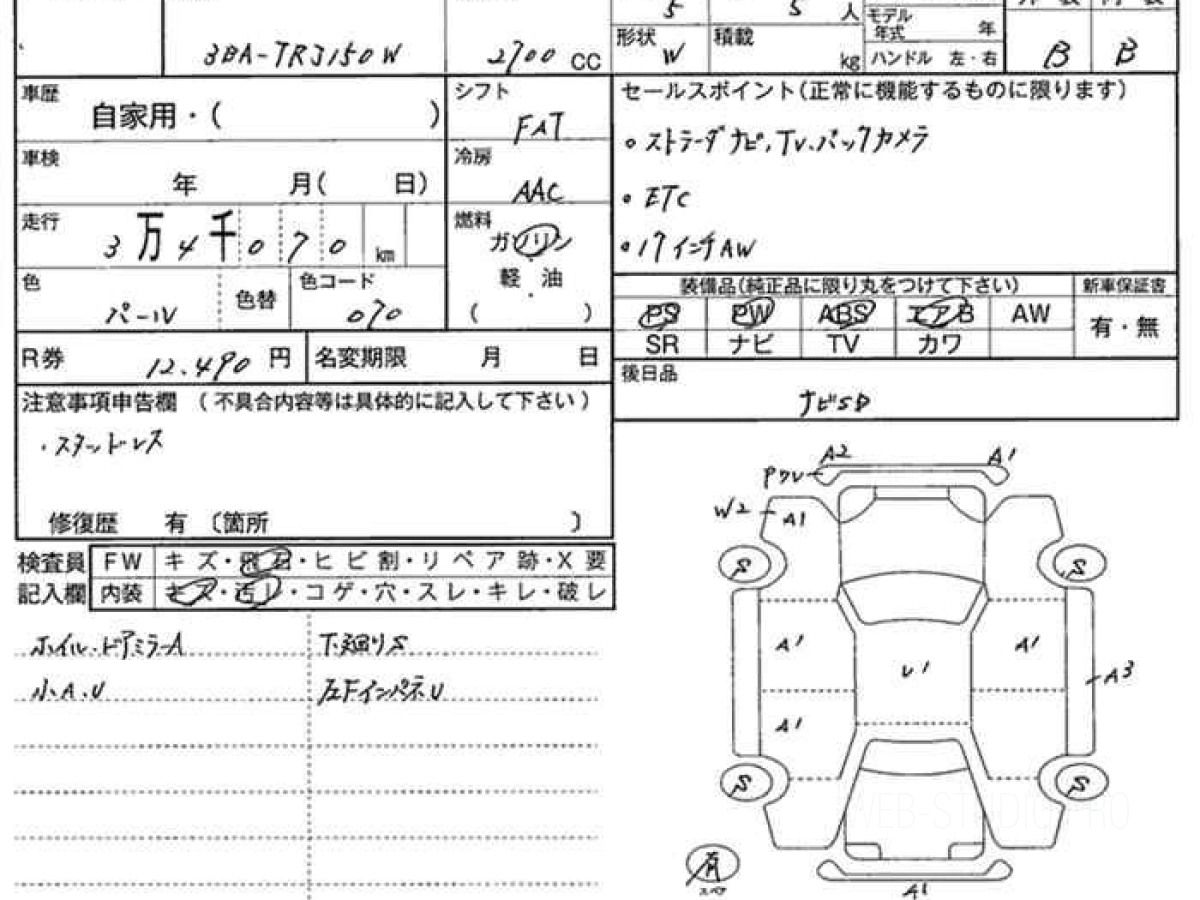 5 5 人
モデル年式 年
3BA-TRJ150W 2700 CC
形状 W 積載 kg ハンドル 左・右 B B
車歴 自家用・( )
シフト FAT
セールスポイント(正常に機能するものに限ります)
○ ストラーダナビ、TV、バックカメラ
○ ETC
○ 17インチAW
車検 年 月( 日)
冷房 AAC
走行 3万4千070 km
燃料 ガソリン
軽油
( )
色 パール 色替 色コード 070
装備品(純正品に限り丸をつけて下さい) 新車保証書
PS PW ABS エアB AW 有・無
SR ナビ TV カワ
R券 12.490 円 名変期限 月 日
後日品 ナビSD
注意事項申告欄 (不具合内容等は具体的に記入して下さい)
・スタッドレス
修復歴 有 〔箇所 〕
検査員記入欄
FW キズ・飛石・ヒビ割・リペア跡・X要
内装 キズ・汚レ・コゲ・穴・スレ・キレ・破レ
ホイル・ドアミラーA 下廻りS
小A.U 左FインパネU
A2 A1
W2 A1
S S
A1 A1
U1 A3
A1
S S
WEB-STUDIO PRO
有
スペア
A1